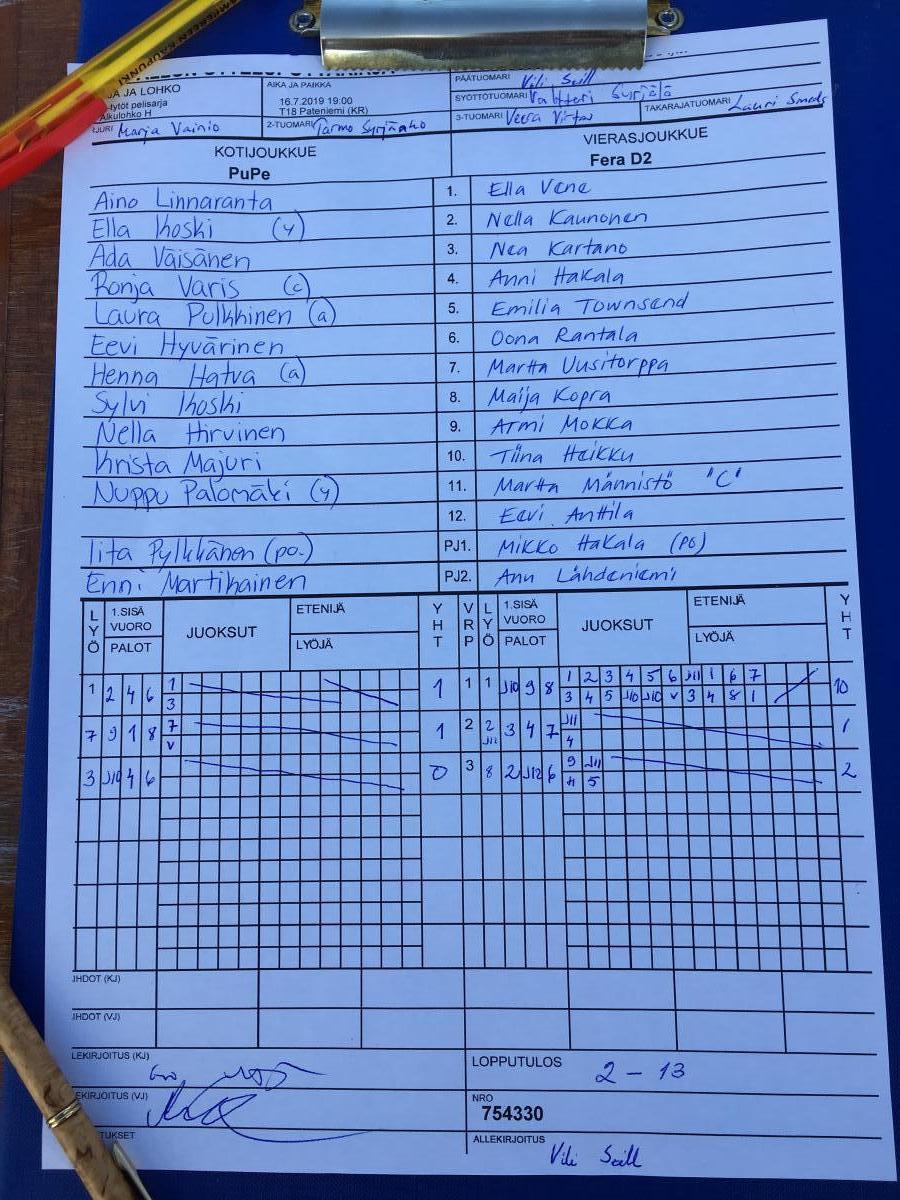 TAMPEREEN KAUPUNKI
JA JA LOHKO
-tytöt pelisarja
Alkulohko H
Marja Vainio
AIKA JA PAIKKA
16.7.2019 19:00
T18 Pateniemi (KR)
2-TUOMARI Tarmo
PÄÄTUOMARI Vili Seill
SYÖTTÖTUOMARI Valtteri Syrjälä
3-TUOMARI Veera Virtav
TAKARAJATUOMARI Lauri
KOTIJOUKKUE
PuPe
VIERASJOUKKUE
Fera D2
Aino Linnaranta 1. Ella Vene
Ella Koski (y) 2. Nella Kaunonen
Ada Väisänen 3. Nea Kartano
Ronja Varis (c) 4. Anni Hakala
Laura Pulkkinen (a) 5. Emilia Townsend
Eevi Hyvärinen 6. Oona Rantala
Henna Hatva (a) 7. Martta Uusitorppa
Sylvi Koski 8. Maija Kopra
Nella Hirvinen 9. Armi Mokka
Krista Majuri 10. Tiina Heikku
Nuppu Palomäki (y) 11. Martta Männistö "C"
12. Eevi Anttila
Iita Pylkkänen (po.) PJ1. Mikko Hakala (po)
Enni Martikainen PJ2. Anu Lähdeniemi
LYÖ 1.SISÄ VUORO PALOT JUOKSUT ETENIJÄ LYÖJÄ YHT VRP LYÖ 1.SISÄ VUORO PALOT JUOKSUT ETENIJÄ LYÖJÄ YHT
1 2 4 6 1 1 1 1 J10 9 8 1 2 3 4 5 6 J11 1 6 7 10
3 3 4 5 J10 J10 v 3 4 8 1
7 9 1 8 7 1 2 2 3 4 7 J11 1
v J12 4
3 J10 4 6 0 3 8 2 J12 6 9 J11 2
4 5
HDOT (KJ)
HDOT (VJ)
LEKIRJOITUS (KJ)
LOPPUTULOS 2 - 13
EKIRJOITUS (VJ)
NRO
754330
TUKSET
ALLEKIRJOITUS
Vili Seill